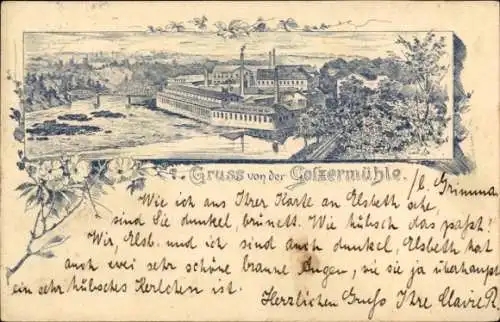 Gruss von der Golzermühle.
b. Grimma
Wie ich aus Ihrer Karte an Elsbeth sehe,
sind Sie dunkel, brünett. Wie hübsch das paßt!
Wir, Elsb. und ich sind auch dunkel, Elsbeth hat
auch zwei sehr schöne braune Augen, wie sie ja überhaupt
ein sehr hübsches Kerlchen ist.
Herzlichen Gruß Ihre Clavie R.